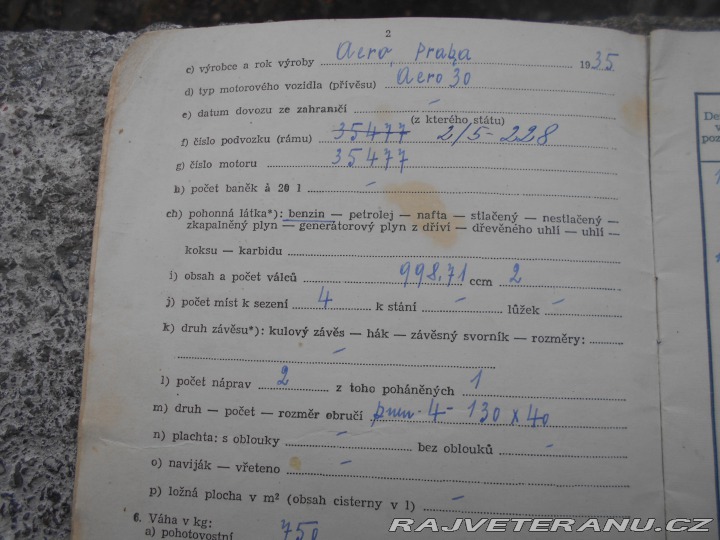 2
c) výrobce a rok výroby Aero, Praha 1935.
d) typ motorového vozidla (přívěsu) Aero 30
e) datum dovozu ze zahraničí –
(z kterého státu)
f) číslo podvozku (rámu) 35477 2/5-228
g) číslo motoru 35477
h) počet baněk à 20 l –
ch) pohonná látka*): benzin — petrolej — nafta — stlačený — nestlačený —
zkapalněný plyn — generátorový plyn z dříví — dřevěného uhlí — uhlí —
koksu — karbidu
i) obsah a počet válců 998.71 ccm 2
j) počet míst k sezení 4 k stání – lůžek –
k) druh závěsu*): kulový závěs — hák — závěsný svorník — rozměry:
–
l) počet náprav 2 z toho poháněných 1
m) druh — počet — rozměr obručí pnm - 4 - 130 x 40
n) plachta: s oblouky – bez oblouků –
o) naviják — vřeteno –
p) ložná plocha v m² (obsah cisterny v l) –
6. Váha v kg:
a) pohotovostní 750
De
v
poz
RAJVETERANU.CZ